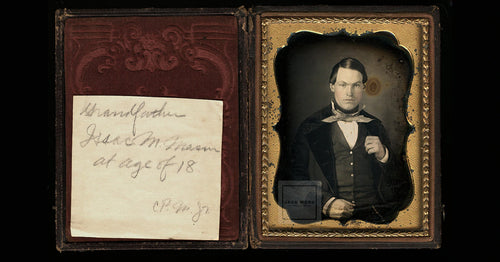 Grandfather
Isaac M. Mason
at age of 18
C.P.M. Jr